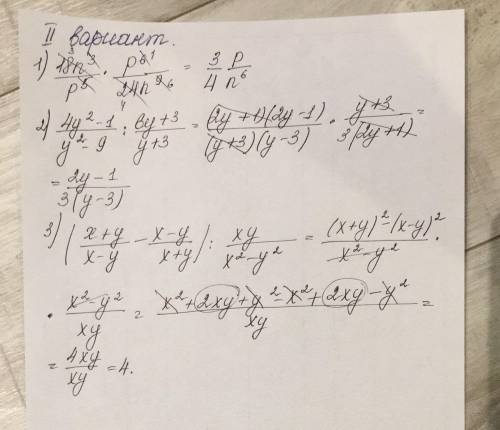 II вариант.
1) 18n³/p⁵ · p⁶/24n⁹ = 3/4 p/n⁶
2) (4y²-1)/(y²-9) : (6y+3)/(y+3) = (2y+1)(2y-1)/(y+3)(y-3) · (y+3)/3(2y+1) =
= (2y-1)/3(y-3)
3) ((x+y)/(x-y) - (x-y)/(x+y)) : xy/(x²-y²) = ((x+y)²-(x-y)²)/(x²-y²) ·
· (x²-y²)/xy = (x²+2xy+y²-x²+2xy-y²)/xy =
= 4xy/xy = 4.